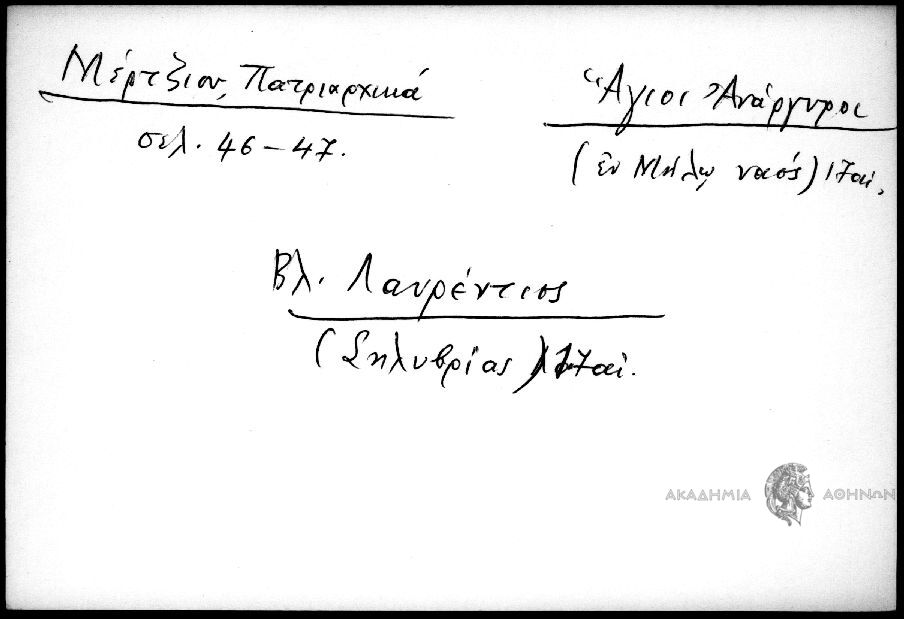 Μέρτζιου, Πατριαρχικά
σελ. 46-47.
Ἅγιοι Ἀνάργυροι
(ἐν Μήλῳ ναός) 17 αἰ.
Βλ. Λαυρέντιος
(Σηλυβρίας) 17 αἰ.
ΑΚΑΔΗΜΙΑ ΑΘΗΝΩΝ